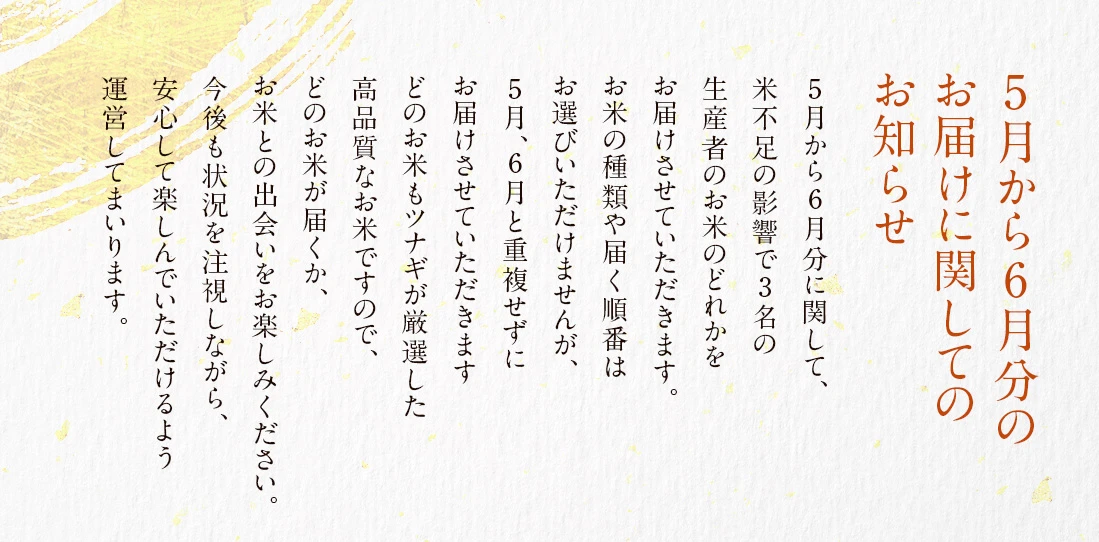 5月から6月分の
お届けに関しての
お知らせ
5月から6月分に関して、
米不足の影響で3名の
生産者のお米のどれかを
お届けさせていただきます。
お米の種類や届く順番は
お選びいただけませんが、
5月、6月と重複せずに
お届けさせていただきます
どのお米もツナギが厳選した
高品質なお米ですので、
どのお米が届くか、
お米との出会いをお楽しみください。
今後も状況を注視しながら、
安心して楽しんでいただけるよう
運営してまいります。